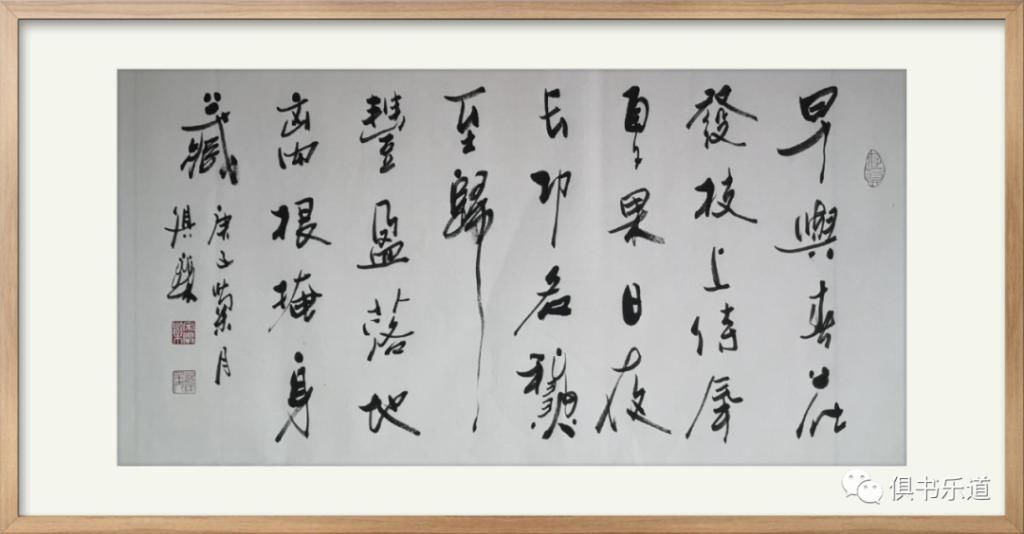 早與春花
發枝上待
夏果日夜
長功名
至歸
豐盈落地
离根掩身
藏
庚子月
俱樂
俱书乐道